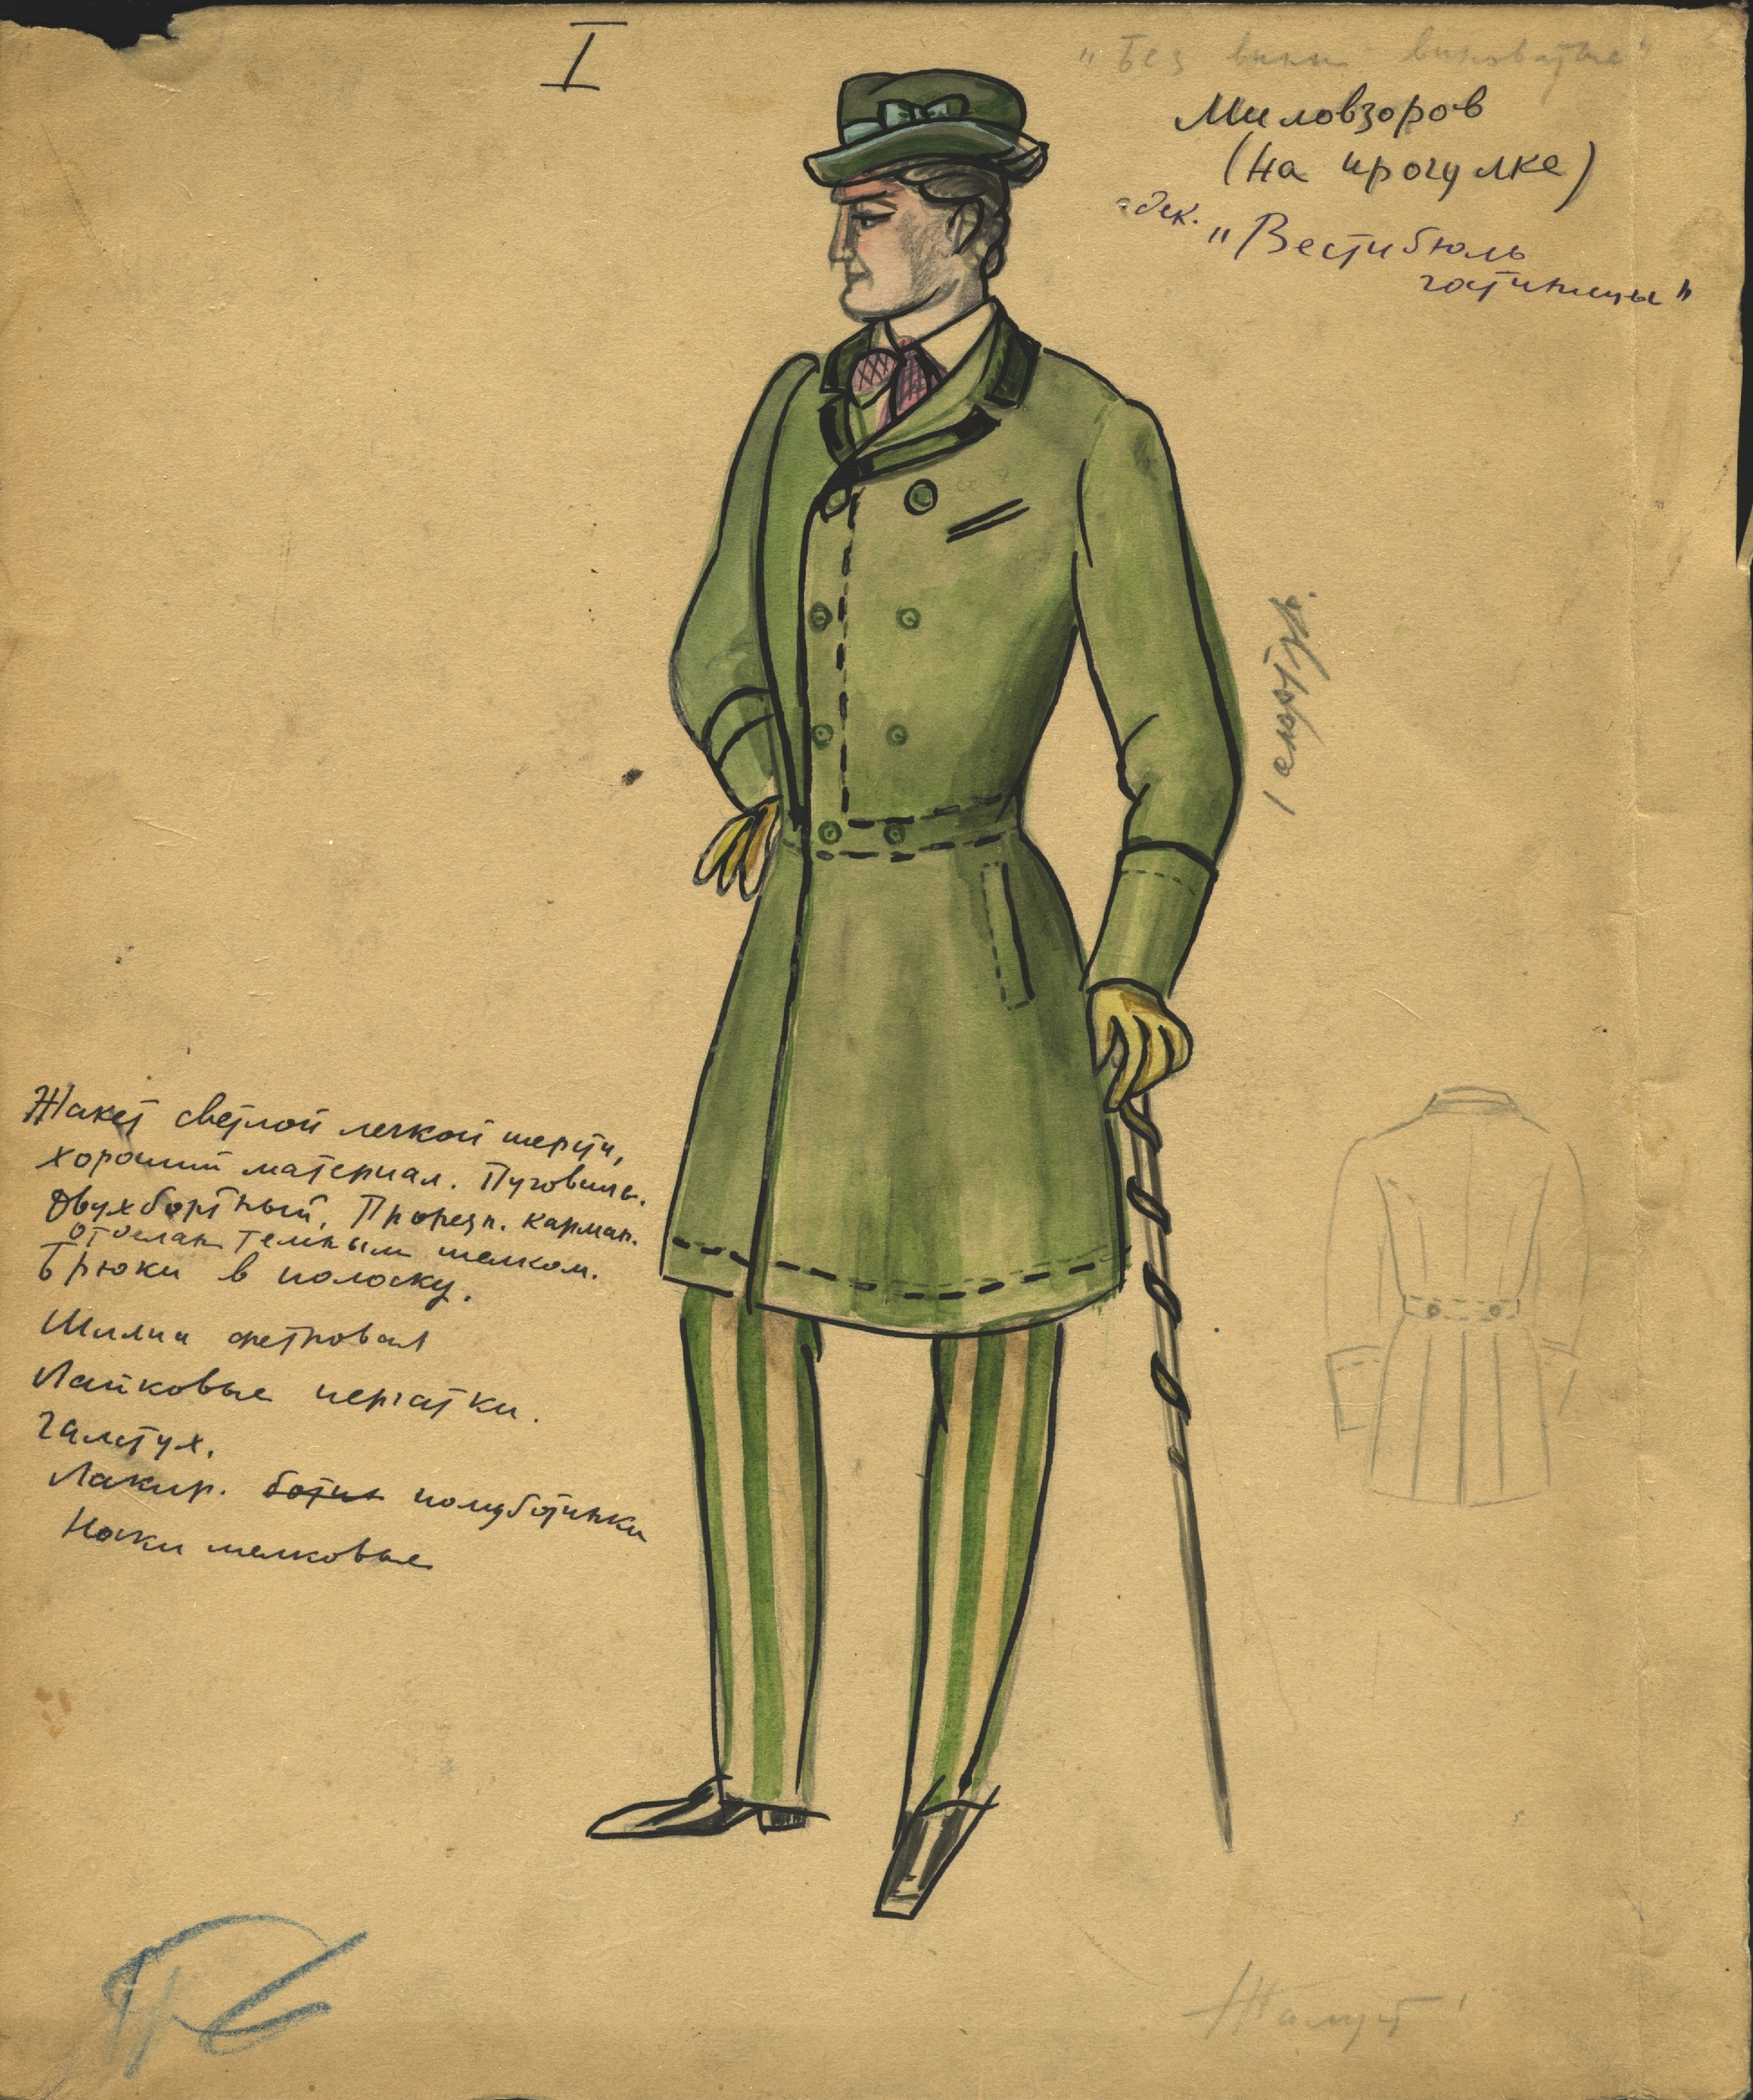 I
"Без вины виноватые"
Миловзоров
(на прогулке)
дек. "Вестибюль
гостиницы"
Жакет светлой легкой шерсти,
хороший материал. Пуговицы.
Двухбортный. Прорезн. карман.
отделан темным шелком.
Брюки в полоску.
Шляпа фетровая
Лайковые перчатки.
Галстух.
Лакир. ботин полуботинки
Носки шелковые